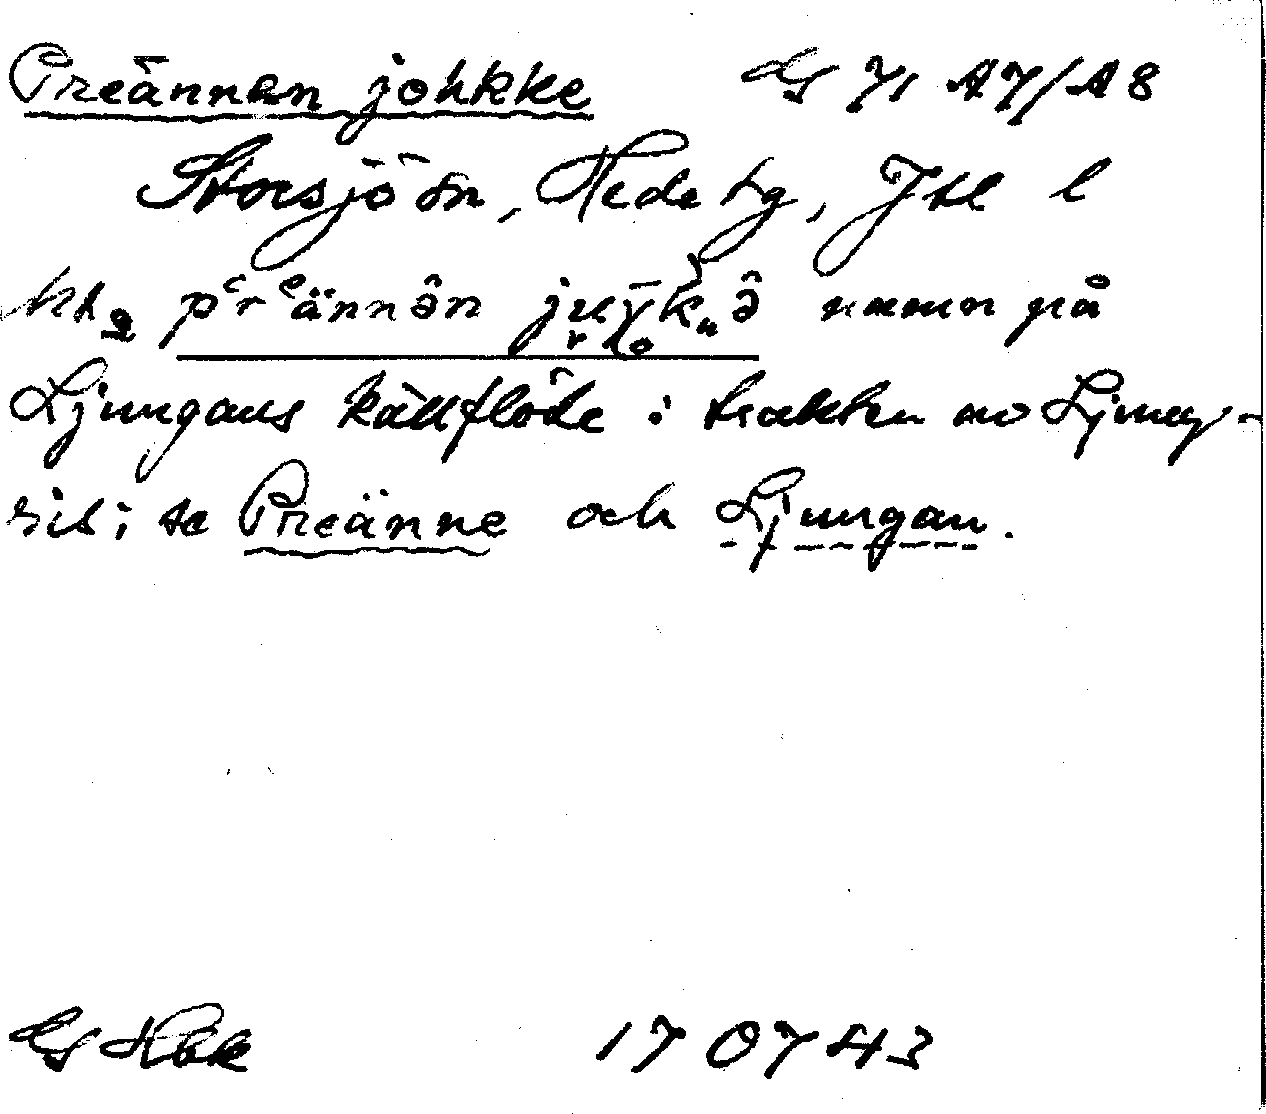 Preännen johkke Gs 71 A7/A8
Storsjö sn, Hede tg, Jtl l
pʿrᵉännə̂n namn på
Ljungans källflöde i trakten av Ljung-
ris; se Preänne och Ljungan.
Gs Hbk 170743